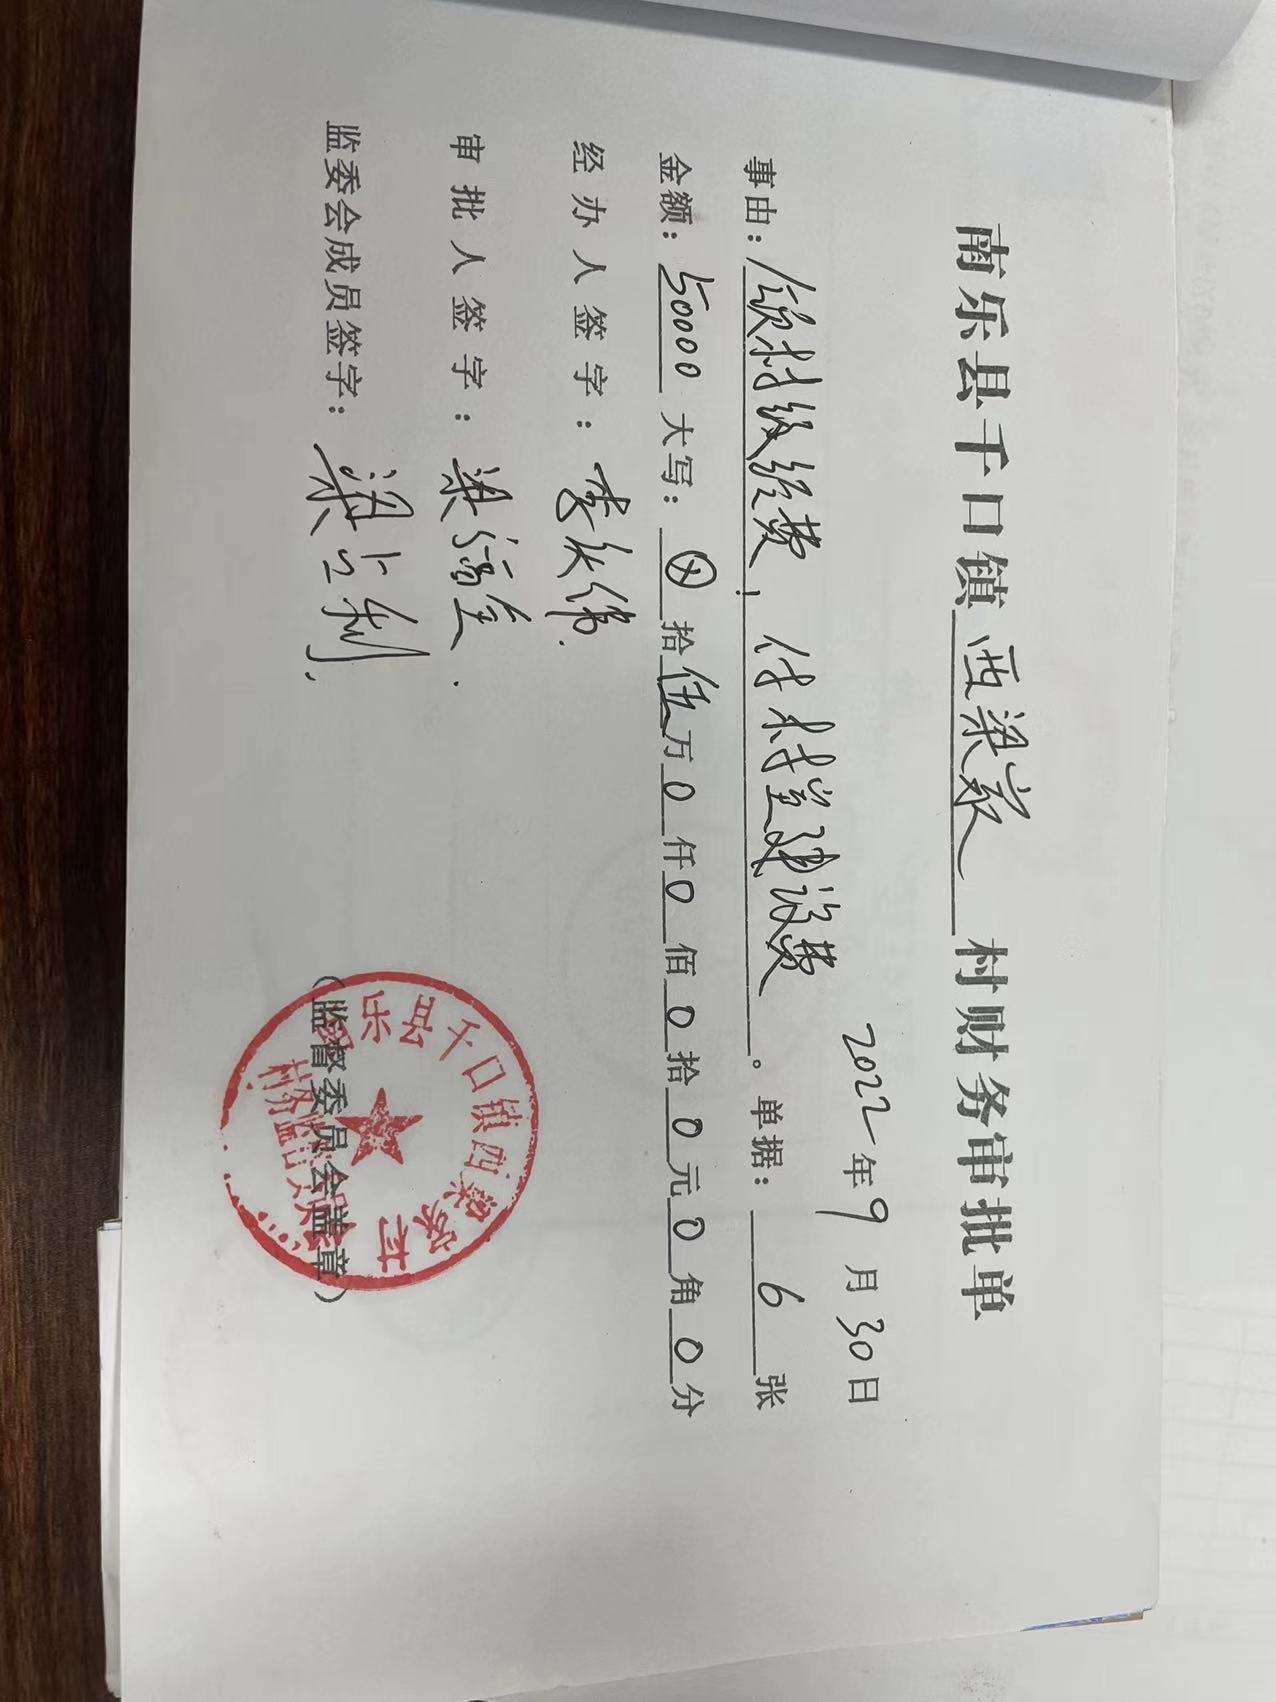 南乐县千口镇西梁家村财务审批单
2022年9月30日
事由:领村级经费,付村室建设费。单据:6张
金额:50000大写:⊗拾伍万0仟0佰0拾0元0角0分
经办人签字:李伟
审批人签字:梁
监委会成员签字:梁占利
(监督委员会盖章)
南乐县千口镇西梁家村
村务监督委员会